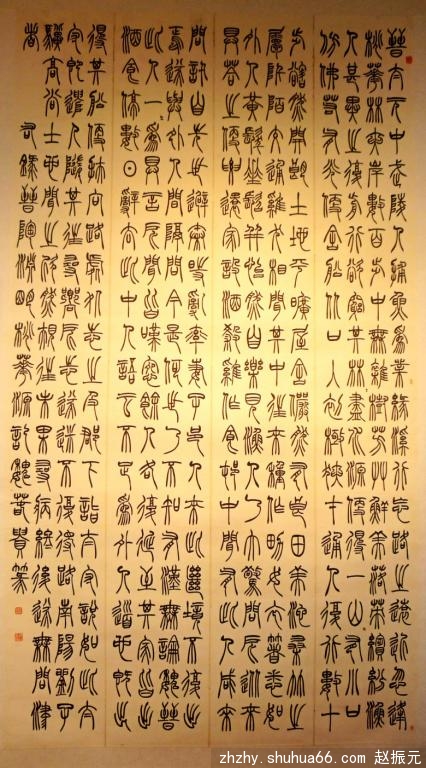 晉太元中武陵人捕魚為業緣溪行忘路之遠近忽逢
桃華林夾岸數百步中無雜樹芳草鮮美落英繽紛漁
人甚異之復前行欲窮其林林盡水源便得一山山有小口
仿佛若有光便舍船從口入初極狹才通人復行數十
步豁然開朗土地平曠屋舍儼然有良田美池桑竹之
屬阡陌交通雞犬相聞其中往來種作男女衣著悉如
外人黃髮垂髫並怡然自樂見漁人乃大驚問所從來
具答之便要還家設酒殺雞作食邨中聞有此人咸來
問訊自云先世避秦時亂率妻子邑人來此絕境不復出
焉遂與外人間隔問今是何世乃不知有漢無論魏晉
此人一一為具言所聞皆嘆惋餘人各復延至其家皆出
酒食停數日辭去此中人語云不足為外人道也既出
得其船便扶向路處處志之及郡下詣太守說如此太
守即遣人隨其往尋嚮所志遂迷不復得路南陽劉子
驥高尚士也聞之欣然規往未果尋病終後遂無問津
者 右錄晉陶淵明桃華源記魏春賢篆
zhzhy.shuhua66.com 赵振元